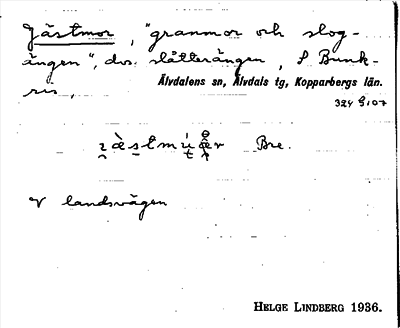 Jästmor, "granmor och slog-
ängen", dvs. slåtterängen, S Bunk-
ris,
Älvdalens sn, Älvdals tg, Kopparbergs län.
Bre.
V landsvägen
HELGE LINDBERG 1936.